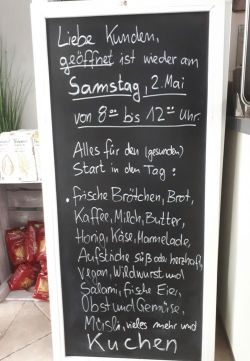 Liebe Kunden,
geöffnet ist wieder am
Samstag, 2. Mai
von 8⁰⁰ bis 12⁰⁰ Uhr.
Alles für den (gesunden)
Start in den Tag:
frische Brötchen, Brot,
Kaffee, Milch, Butter,
Honig, Käse, Marmelade,
Aufstriche süß oder herzhaft,
vegan, Wildwurst und
Salami, frische Eier,
Obst und Gemüse,
Müsli, vieles mehr und
Kuchen